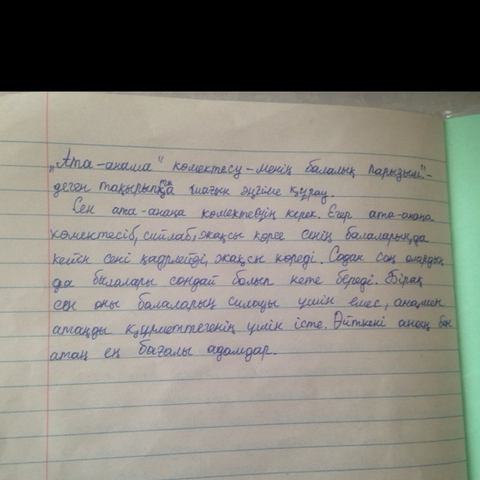 „Ата-анама" көмектесу-менің балалық парызым."-
деген тақырыпқа шағын әңгіме құрау.
Сен ата-анаңа көмектесуің керек. Егер ата-анаңа
көмектесіб, сиплаб, жақсы көрсе сенің балаларың, да
кейін сені қадрлейді, жақсы көреді. Содан соң олардың
да балалары сондай болып кете береді. Бірақ
сен оны балаларың силауы үшін емес, анамен
атаңды құрметтегенің үшін істе. Өйткені анаң бен
атаң ең бағалы адамдар.